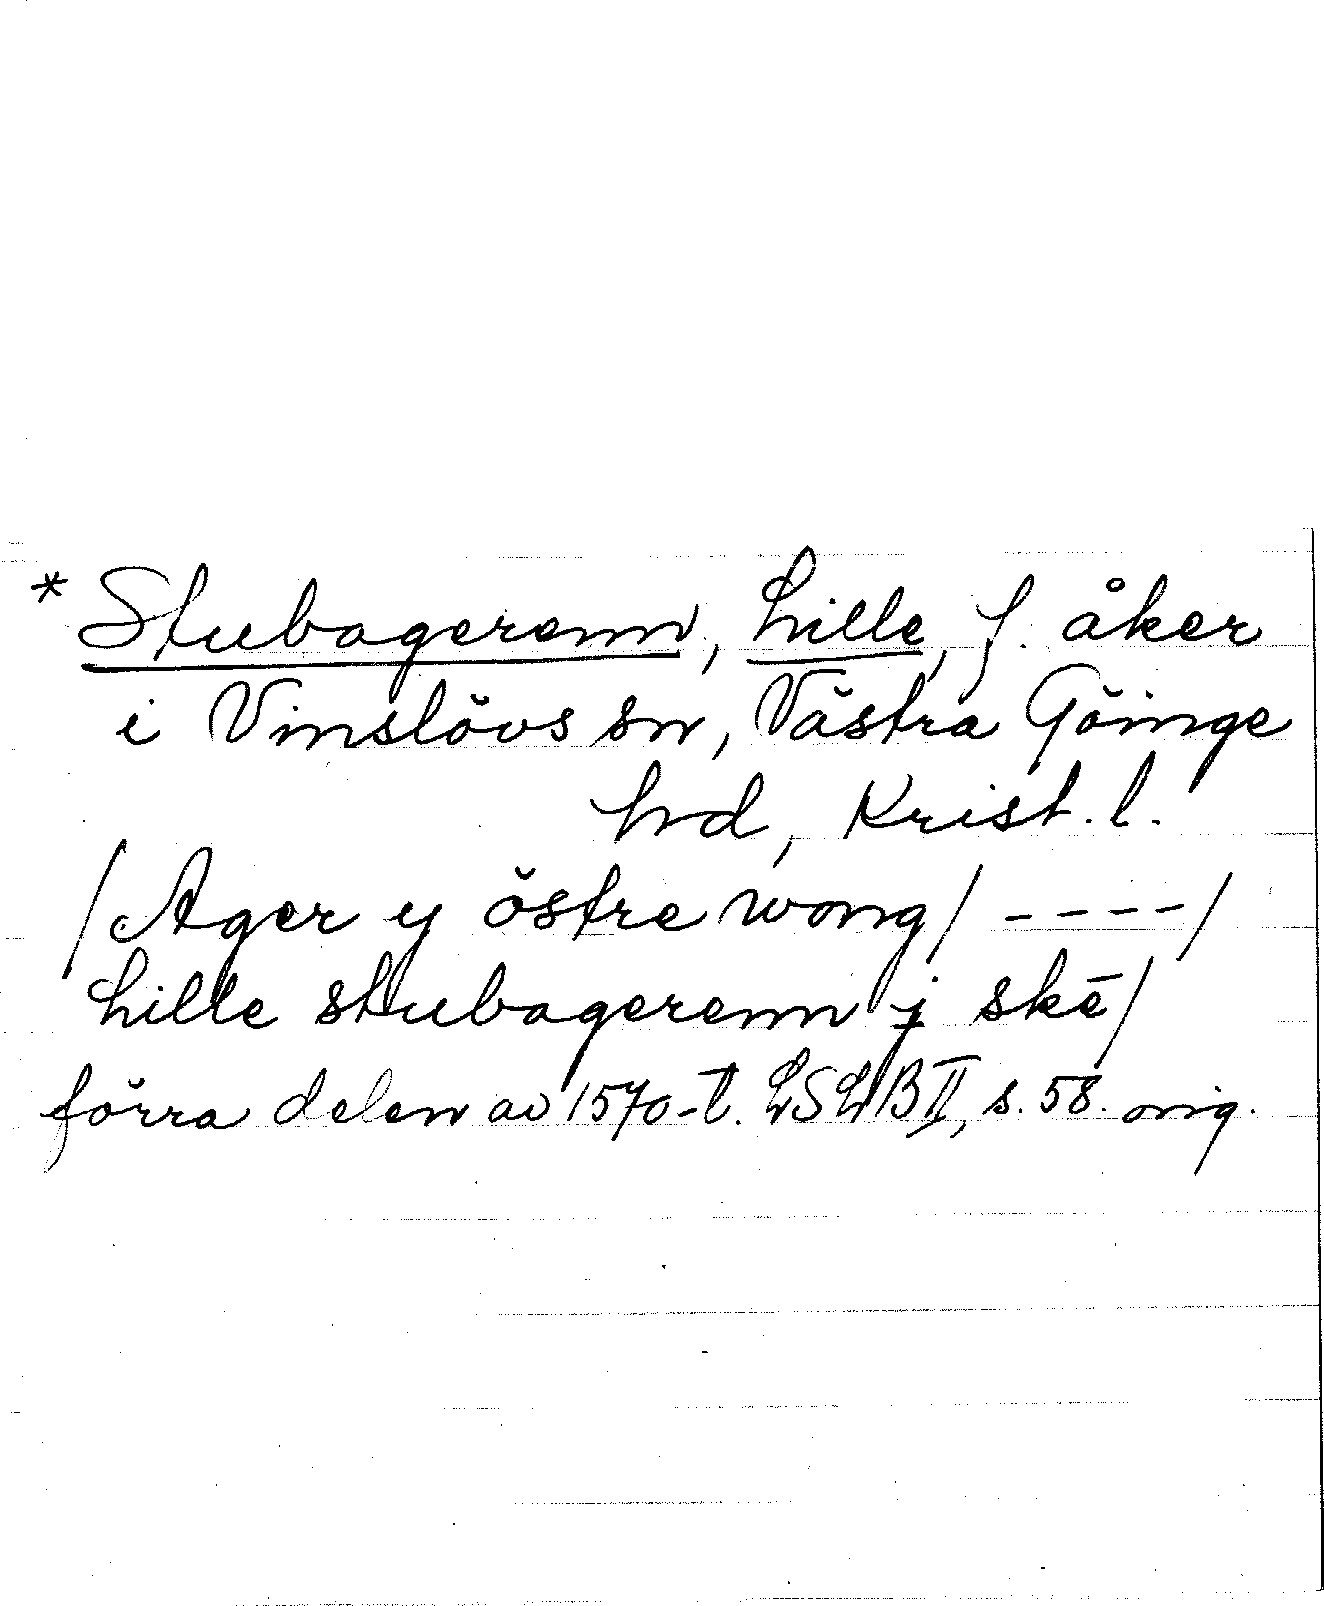 * Stubagerenn, Lille, f. åker
i Vinslövs sn, Västra Göinge
hd, Krist. l.
/Ager y östre wong/ ----/
Lille stubagerenn j skē/
förra delen av 1570-t. LSLB II, s. 58. orig.